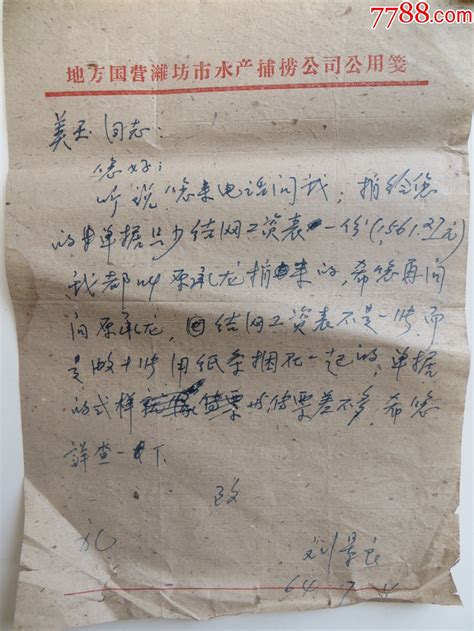 7788.com
地方国营潍坊市水产捕捞公司公用笺
美玉同志:
您好:
听说您来电话问我,捎给您
的单据只少结网工资表一份(1,561.27元)
我都叫原承龙捎来的,希您再问
问原承龙,结网工资表不是一张而
是做十张用纸条捆在一起的,单据
的式样和传票差不多,希您
详查一下
致
礼
刘景良
64.7.4